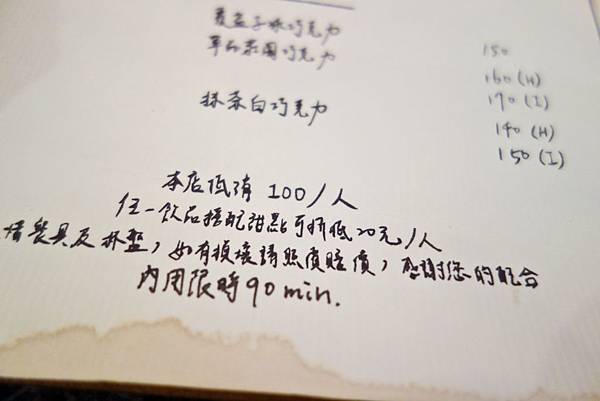 覆盆子冰巧克力
單品莊園巧克力 150
160 (H)
抹茶白巧克力 170 (I)
140 (H)
150 (I)
本店低消 100/人
任一飲品搭配甜點可折低20元/人
惜餐具及杯盤，如有損壞請照價賠償，感謝您的配合
內用限時90 min.